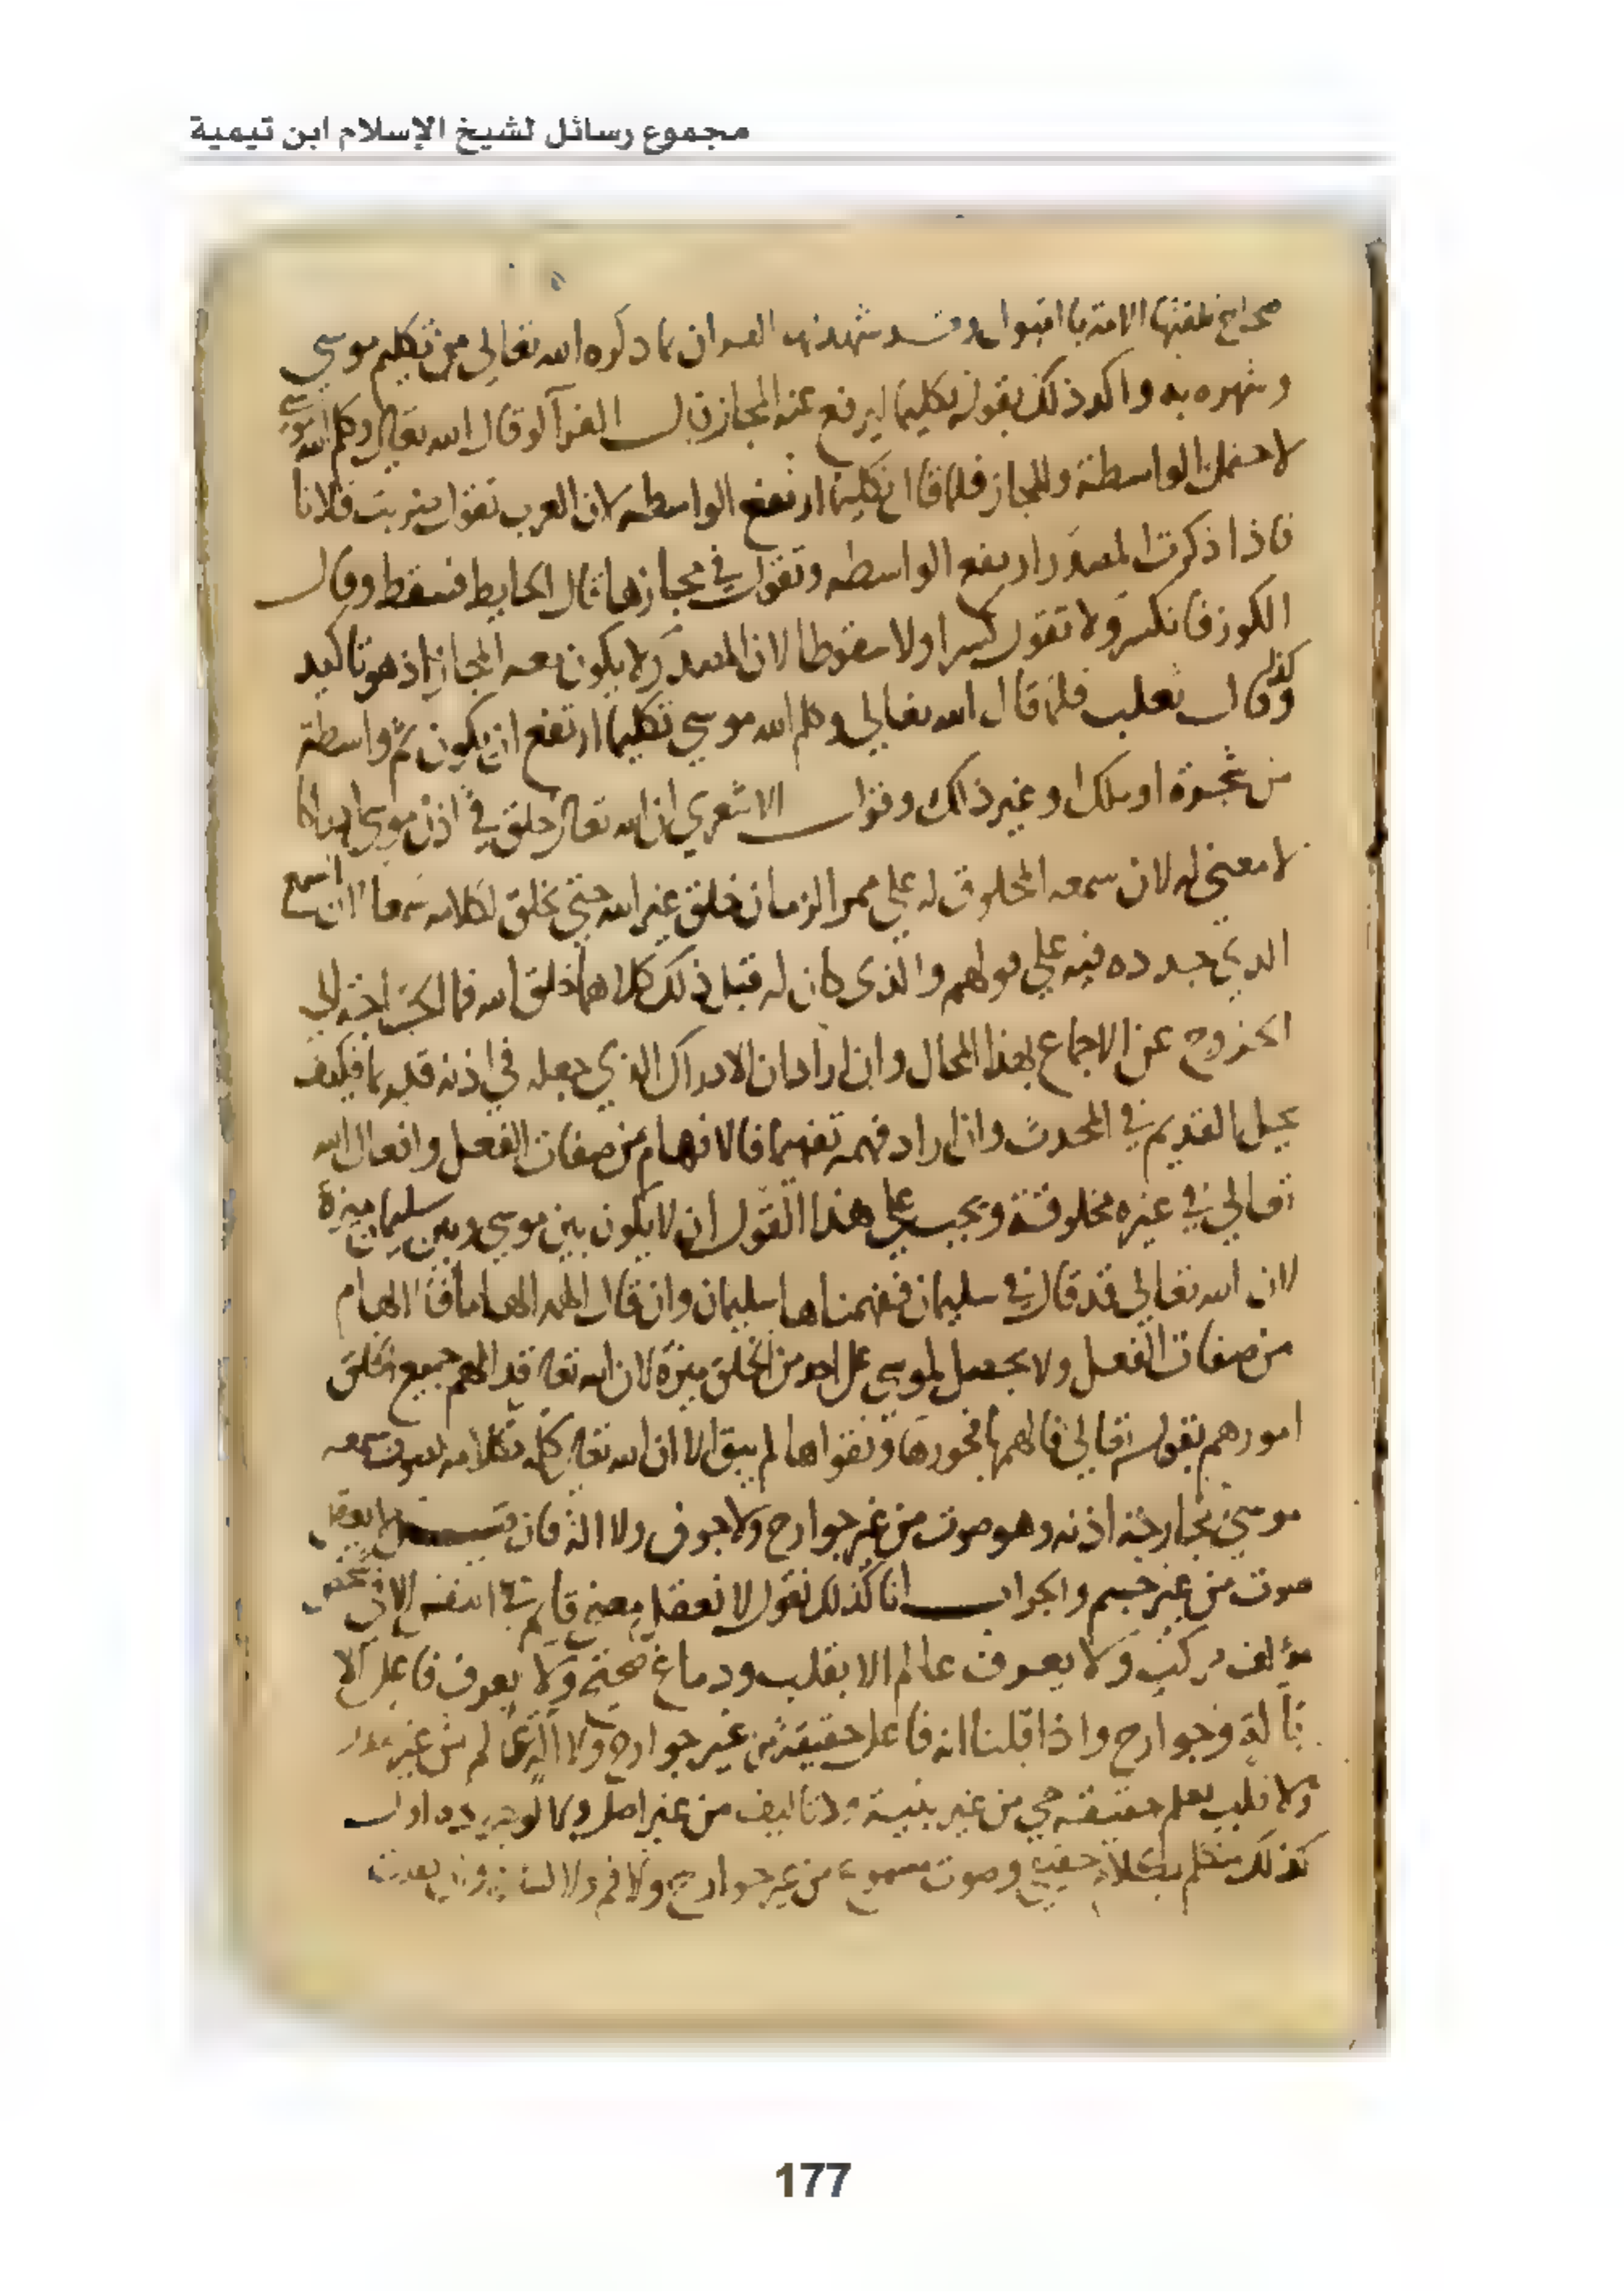 مجموع رسائل لشيخ الإسلام ابن تيمية
صحاح تلقتها الامة بالقبول وقد شهد لها القران بما ذكره الله تعالى من تكليم موسى
وشهره به واكد ذلك بقوله تكليما ليرفع عنه المجاز قال الفرآ لو قال الله تعالى وكلم الله موسى
لاحتمل الواسطة والمجاز فلما قال تكليما ارتفع الواسطه لان العرب تقول ضربت فلانا
فاذا ذكرت المصدر ارتفع الواسطه وتقول في مجازها مال الحايط فسقط ومال
الكوز فانكسر ولا تقول كسرا ولا سقوطا لان المصدر لا يكون معه المجاز اذ هو تاكيد
وكذلك قال ثعلب فلما قال الله تعالى وكلم الله موسى تكليما ارتفع ان يكون ثم واسطة
من شجرة او ملك او غير ذلك وقول الاشعري ان الله تعالى خلق في اذن موسى
لا معنى له لان سمعه المخلوق له على ممر الزمان خلق غير الله حتى يخلق لكلامه سمعا اسمع
الذي جدده فيه على قولهم والذي كان له قبل ذلك كلاهما خلق الله فما
الخروج عن الاجماع بهذا المحال وان اراد ان الادراك الذي جعله في اذنه قديما فكيف
يحيل القديم في المحدث وان اراد فهمه تفهيما فالافهام من صفات الفعل وافعال الله
تعالى في غيره مخلوقة ويجب على هذا القول ان لا يكون بين موسى وبين سليمان ميزة
لان الله تعالى قد قال في سليمان ففهمناها سليمان وان قال الهمه الهاما فالالهام
من صفات الفعل ولا يحصل لموسى على احد من الخلق ميزة لان الله تعالى قد الهم جميع الخلق
امورهم بقوله تعالى فالهمها فجورها وتقواها لم يبق الا ان الله تعالى كلمه بكلامه بصوت سمعه
موسى بجارحة اذنه وهو صوت من غير جوارح ولا جوف ولا الة فان قيل لا يعقل
صوت من غير جسم والجواب انا كذلك نقول لا نعقل معنى قايم في النفس الا في شخص
مؤلف مركب ولا يعرف عالم الا بقلب ودماغ صحيح ولا يعرف فاعل الا
بآلة وجوارح واذا قلنا انه فاعل حقيقة من غير جوارح ولا الة عالم من غير
ولا قلب يعلم حقيقة حي من غير بنية ولا تاليف من غير اصل ولا لوجوده اول
كذلك متكلم بكلام حقيقي وصوت مسموع من غير جوارح ولا فم ولا لسان
177